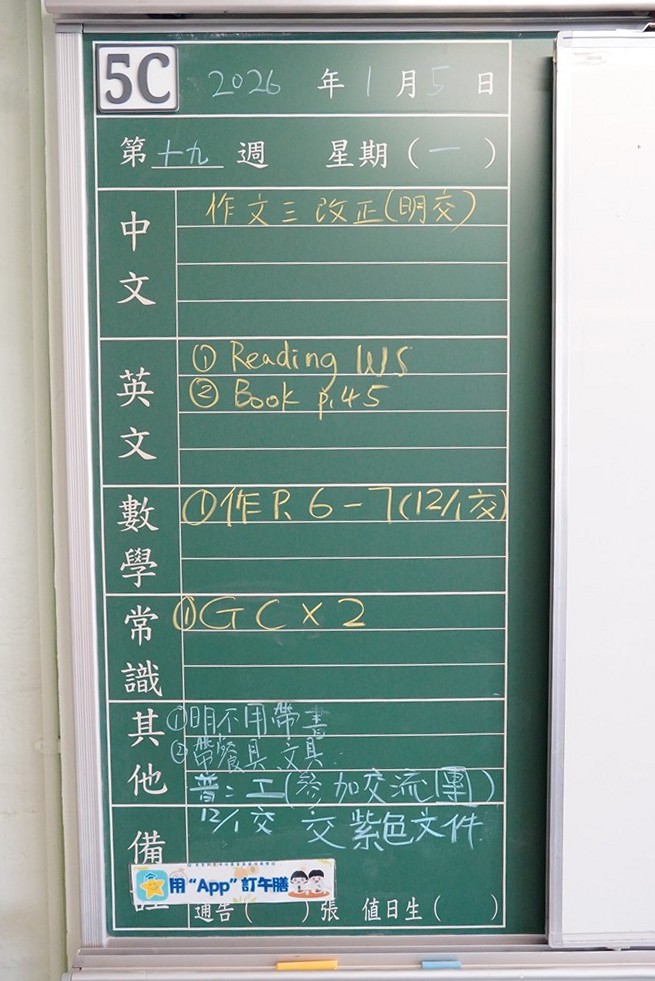 5C 2026 年 1 月 5 日
第 十九 週 星期 ( 一 )
中文
作文三 改正(明交)
英文
① Reading WS
② Book p.45
數學
①作 P. 6-7(12/1交)
常識
①GC×2
其他
①明不用帶書
②帶餐具、文具
普:工(參加交流團)
備
12/1交 交紫色文件
用“App”訂午膳
通告 ( ) 張 值日生 ( )